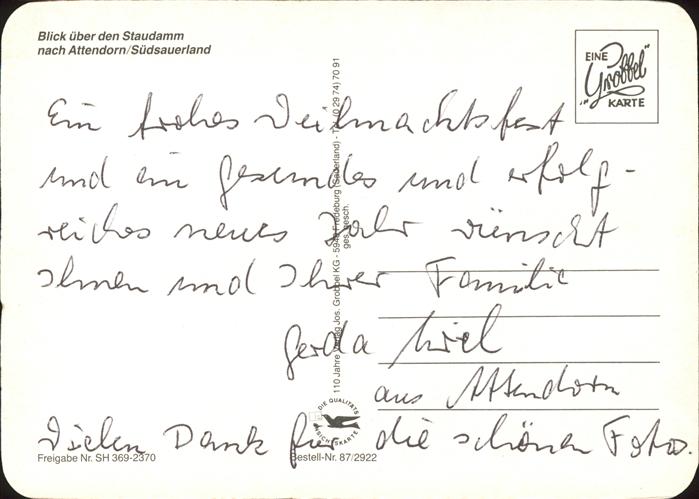 Blick über den Staudamm
nach Attendorn/Südsauerland
EINE
"Grobbel"
KARTE
Ein frohes Weihnachtsfest
und ein gesundes und erfolg-
reiches neues Jahr wünscht
Ihnen und Ihrer Familie
Gerda
aus Attendorn
Vielen Dank für die schönen Fotos.
110 Jahre Verlag Jos. Grobbel KG - 5948 Fredeburg (Sauerland) - Tel. (0 29 74) 70 91
ges. gesch.
DIE QUALITÄTS
ANSICHTSKARTE
Freigabe Nr. SH 369-2370
Bestell-Nr. 87/2922